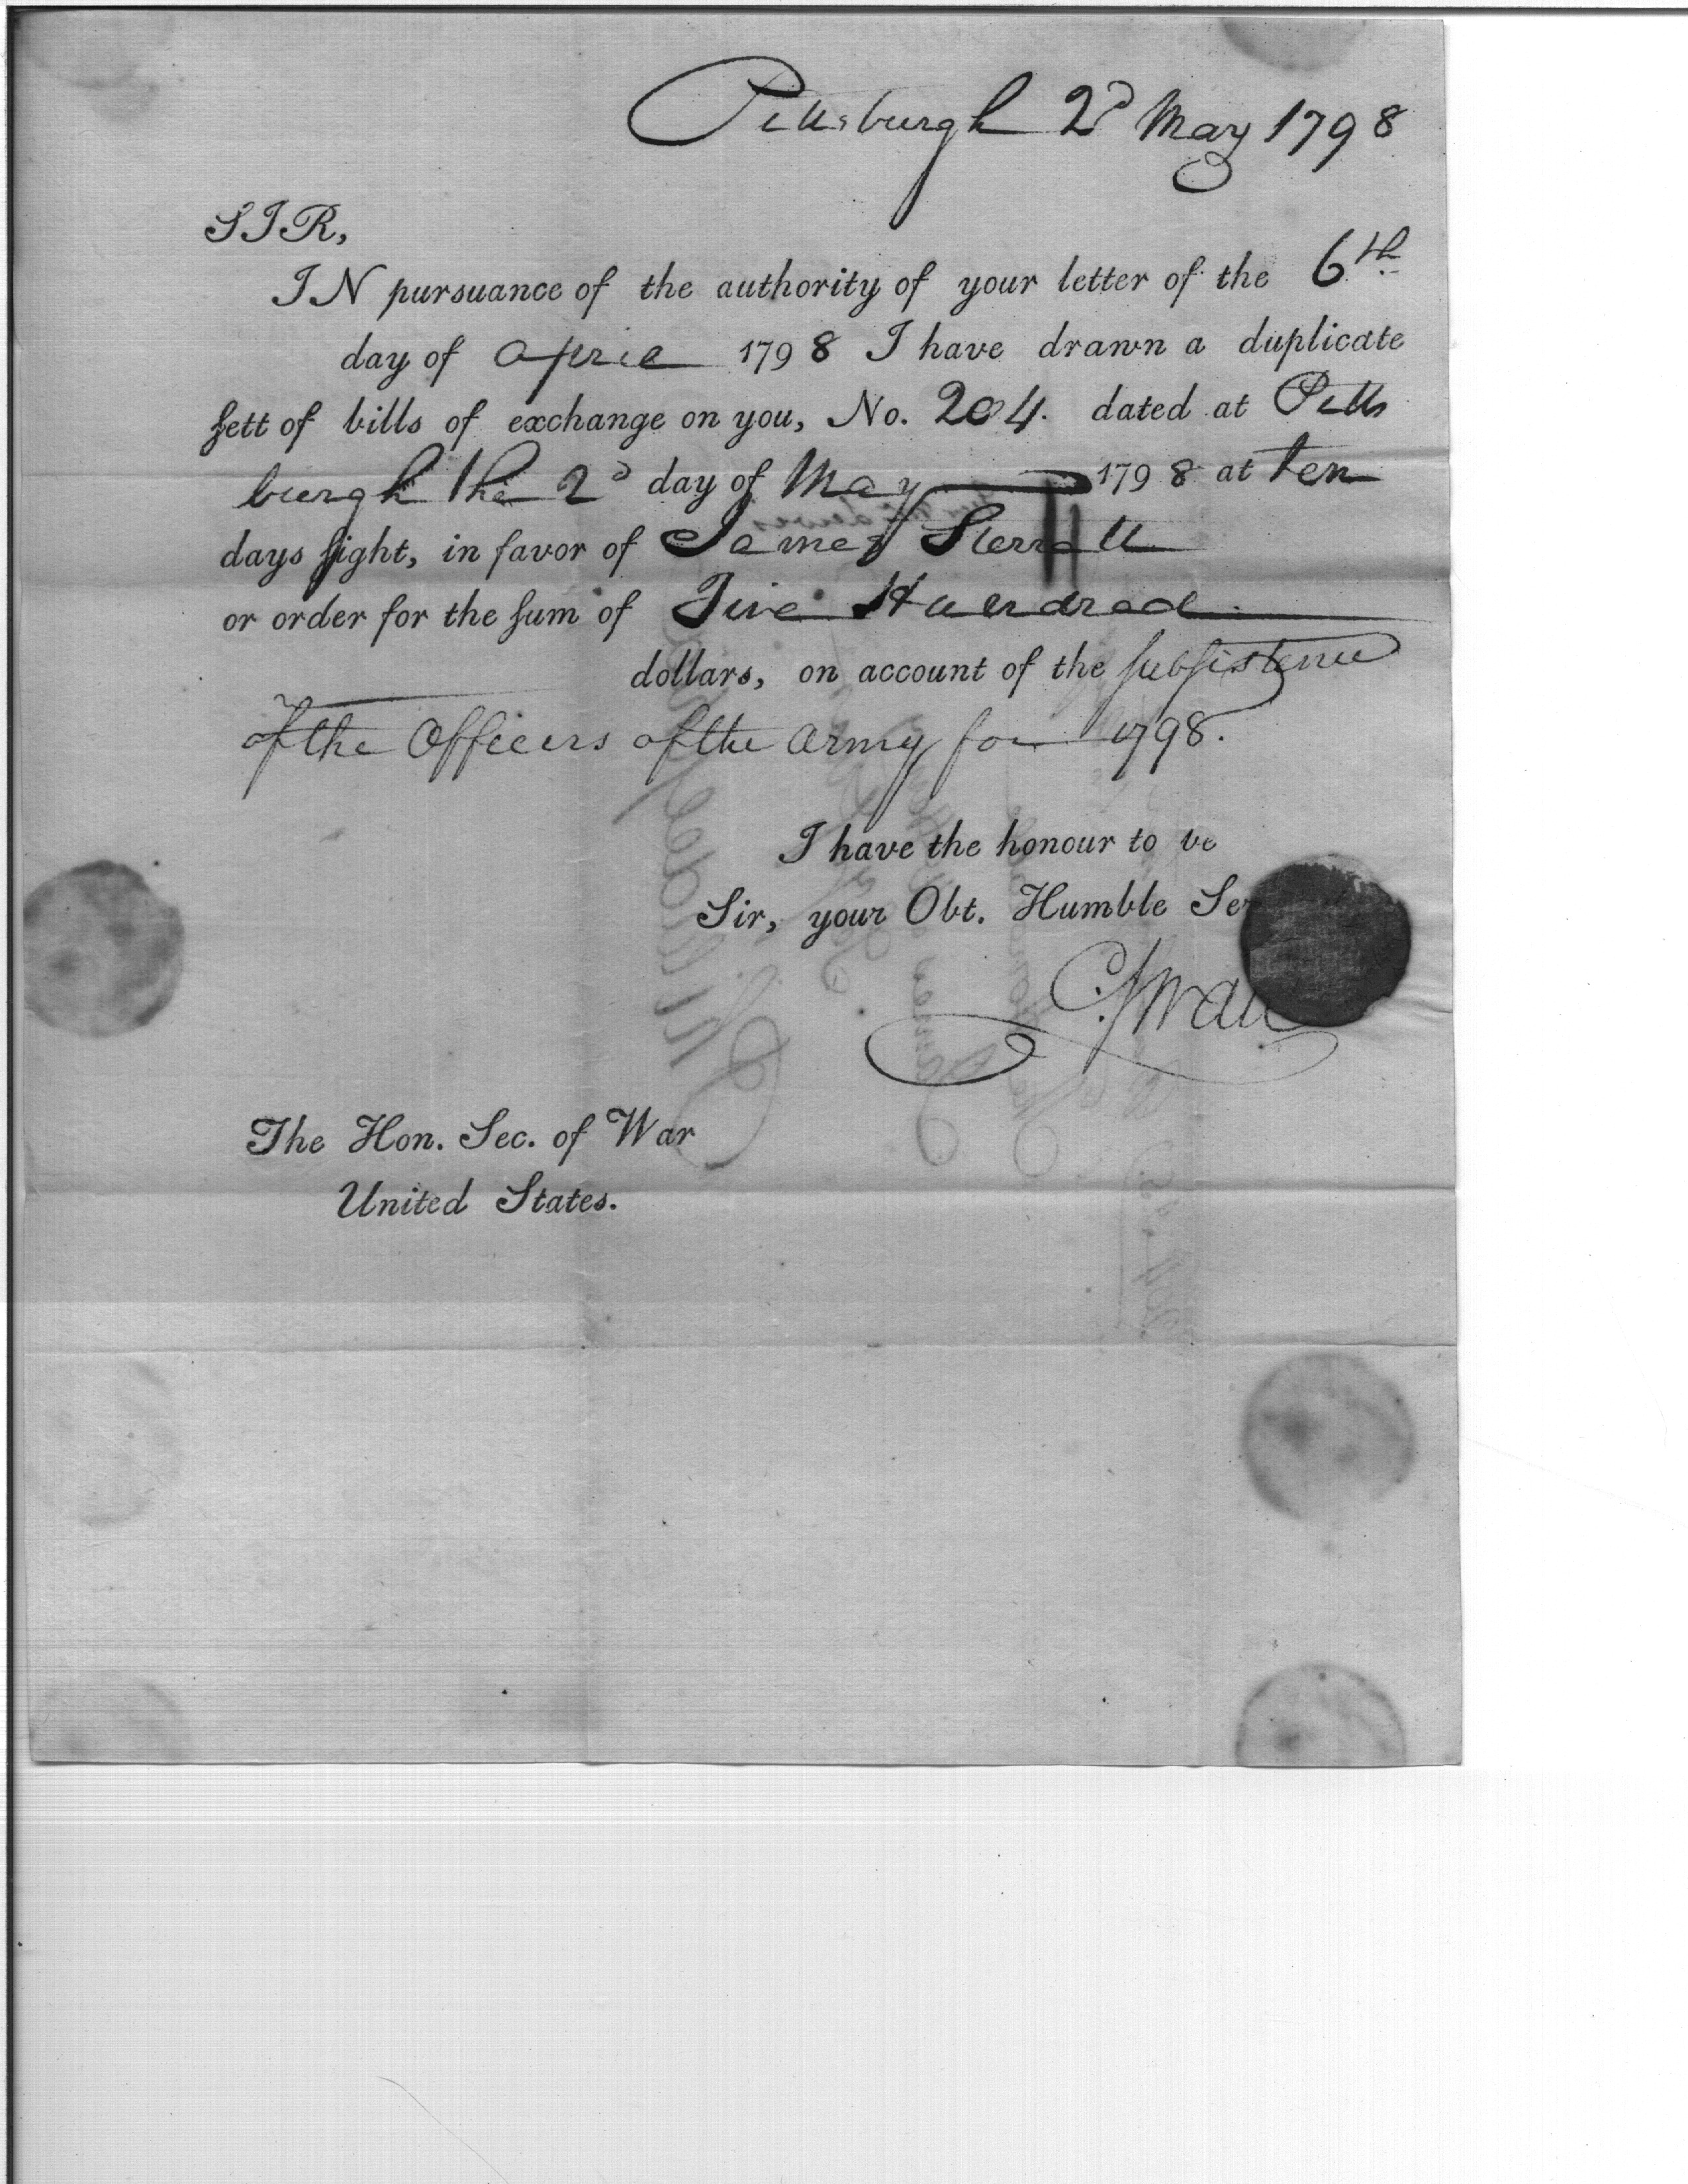 Pittsburgh 2d May 1798
SIR,
IN pursuance of the authority of your letter of the 6th
day of April 1798 I have drawn a duplicate
sett of bills of exchange on you, No. 204. dated at Pitts
burgh the 2d day of May 1798 at ten
days sight, in favor of James Sterrett
or order for the sum of Five Hundred
dollars, on account of the subsistence
of the Officers of the Army for 1798.
I have the honour to be
Sir, your Obt. Humble Ser
C. Swan
The Hon. Sec. of War
United States.